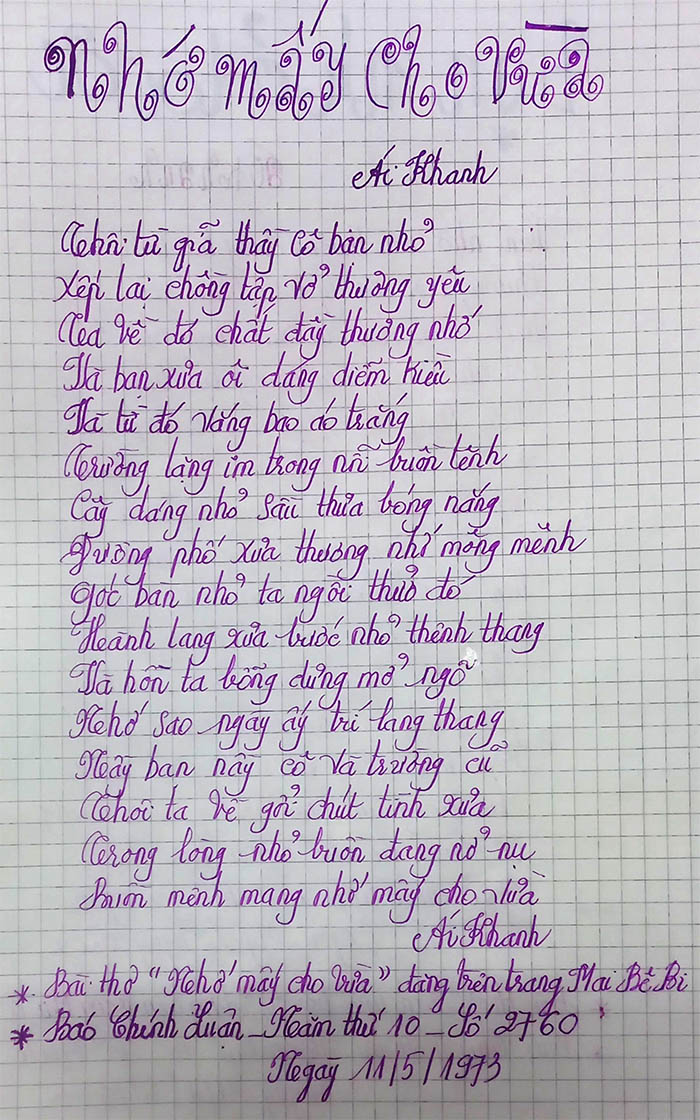 Nhớ mấy cho vừa
Ái Khanh
Thôi từ giã thầy cô bạn nhỏ
Xếp lại chồng tập vở thương yêu
Ta về đó chất đầy thương nhớ
Và bạn xưa ơi dáng diễm kiều
Và từ đó vắng bao áo trắng
Trường lặng im trong nỗi buồn tênh
Cây dáng nhỏ sầu thưa bóng nắng
Đường phố xưa thương nhớ mông mênh
Góc bàn nhỏ ta ngồi thuở đó
Hành lang xưa bước nhỏ thênh thang
Và hồn ta bỗng dưng mở ngõ
Nhớ sao ngày ấy trí lang thang
Này bạn này cô và trường cũ
Cho ta về gởi chút tình xưa
Trong lòng nhỏ buồn đang nở nụ
Buồn mênh mang nhớ mấy cho vừa
Ái Khanh
* Bài thơ "Nhớ mấy cho vừa" đăng trên trang Mai Bê Bi
* Báo Chính Luận - Năm thứ 10 - Số 2760
Ngày 11/5/1973